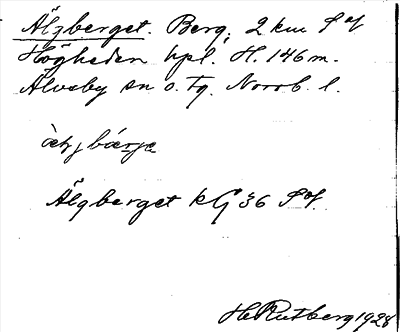 Älgberget. Berg, 2 km S of
Högheden hpl. H. 146 m.
Älvsby sn o. tg. Norrb. l.
Älgberget kG 36 S of.
H. Rutberg 1928